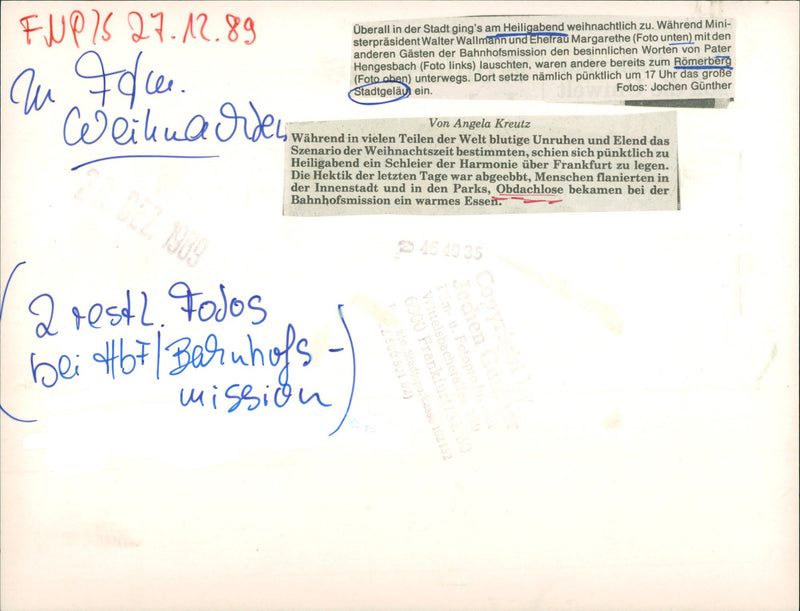 FNP/S 27.12.89
Überall in der Stadt ging's am Heiligabend weihnachtlich zu. Während Mini-
sterpräsident Walter Wallmann und Ehefrau Margarethe (Foto unten) mit den
anderen Gästen der Bahnhofsmission den besinnlichen Worten von Pater
Hengesbach (Foto links) lauschten, waren andere bereits zum Römerberg
(Foto oben) unterwegs. Dort setzte nämlich pünktlich um 17 Uhr das große
Stadtgeläut ein. Fotos: Jochen Günther
Weihnachten
Von Angela Kreutz
Während in vielen Teilen der Welt blutige Unruhen und Elend das
Szenario der Weihnachtszeit bestimmten, schien sich pünktlich zu
Heiligabend ein Schleier der Harmonie über Frankfurt zu legen.
Die Hektik der letzten Tage war abgeebbt, Menschen flanierten in
der Innenstadt und in den Parks, Obdachlose bekamen bei der
Bahnhofsmission ein warmes Essen.
DEZ. 1989
45 49 35
Copyright
Jochen
6000 Frankfurt
(2 restl. Fotos
bei Hbf/Bahnhofs-
mission)